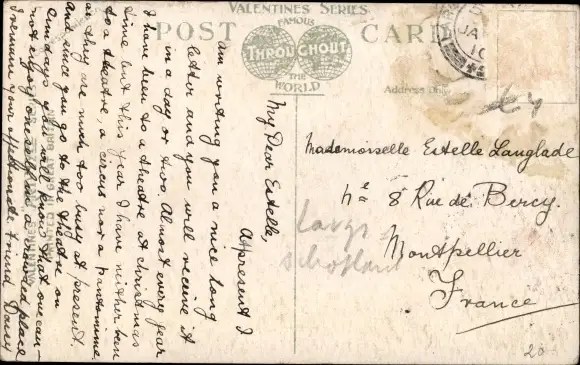 VALENTINES SERIES
POST CARD
FAMOUS
THROUGHOUT
THE
WORLD
Address Only
JA
10
My Dear Estelle,
At present I
am writing you a nice long
letter and you will receive it
in a day or two. Almost every year
I have been to a theatre at christmas
time but this year I have neither been
to a theatre, a circus nor a pantomime
as they are much too busy at present.
And since you go to the theatre on
Sundays you will know that one can-
not enjoy oneself in a crowded place
I remain your affectionate friend Daisy
Mademoiselle Estelle Langlade
8 Rue de Bercy.
Montpellier
France
Large
Schottland
20